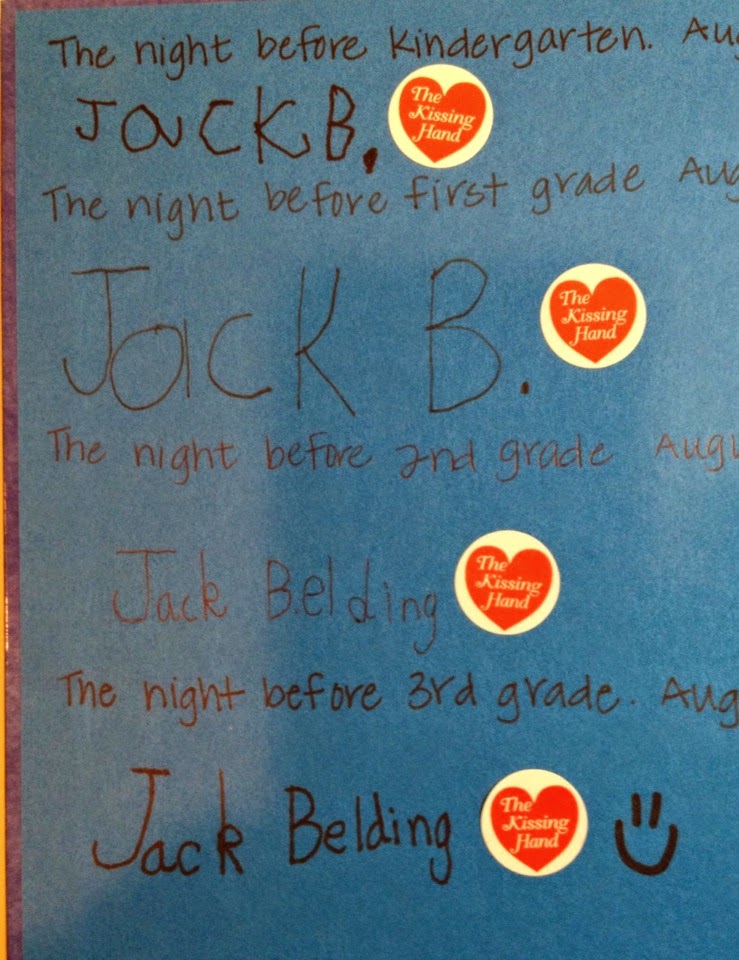 The night before Kindergarten. Aug
Jack B.
The
Kissing
Hand
The night before first grade Aug
Jack B.
The
Kissing
Hand
The night before 2nd grade Augu
Jack Belding
The
Kissing
Hand
The night before 3rd grade. Aug
Jack Belding
The
Kissing
Hand